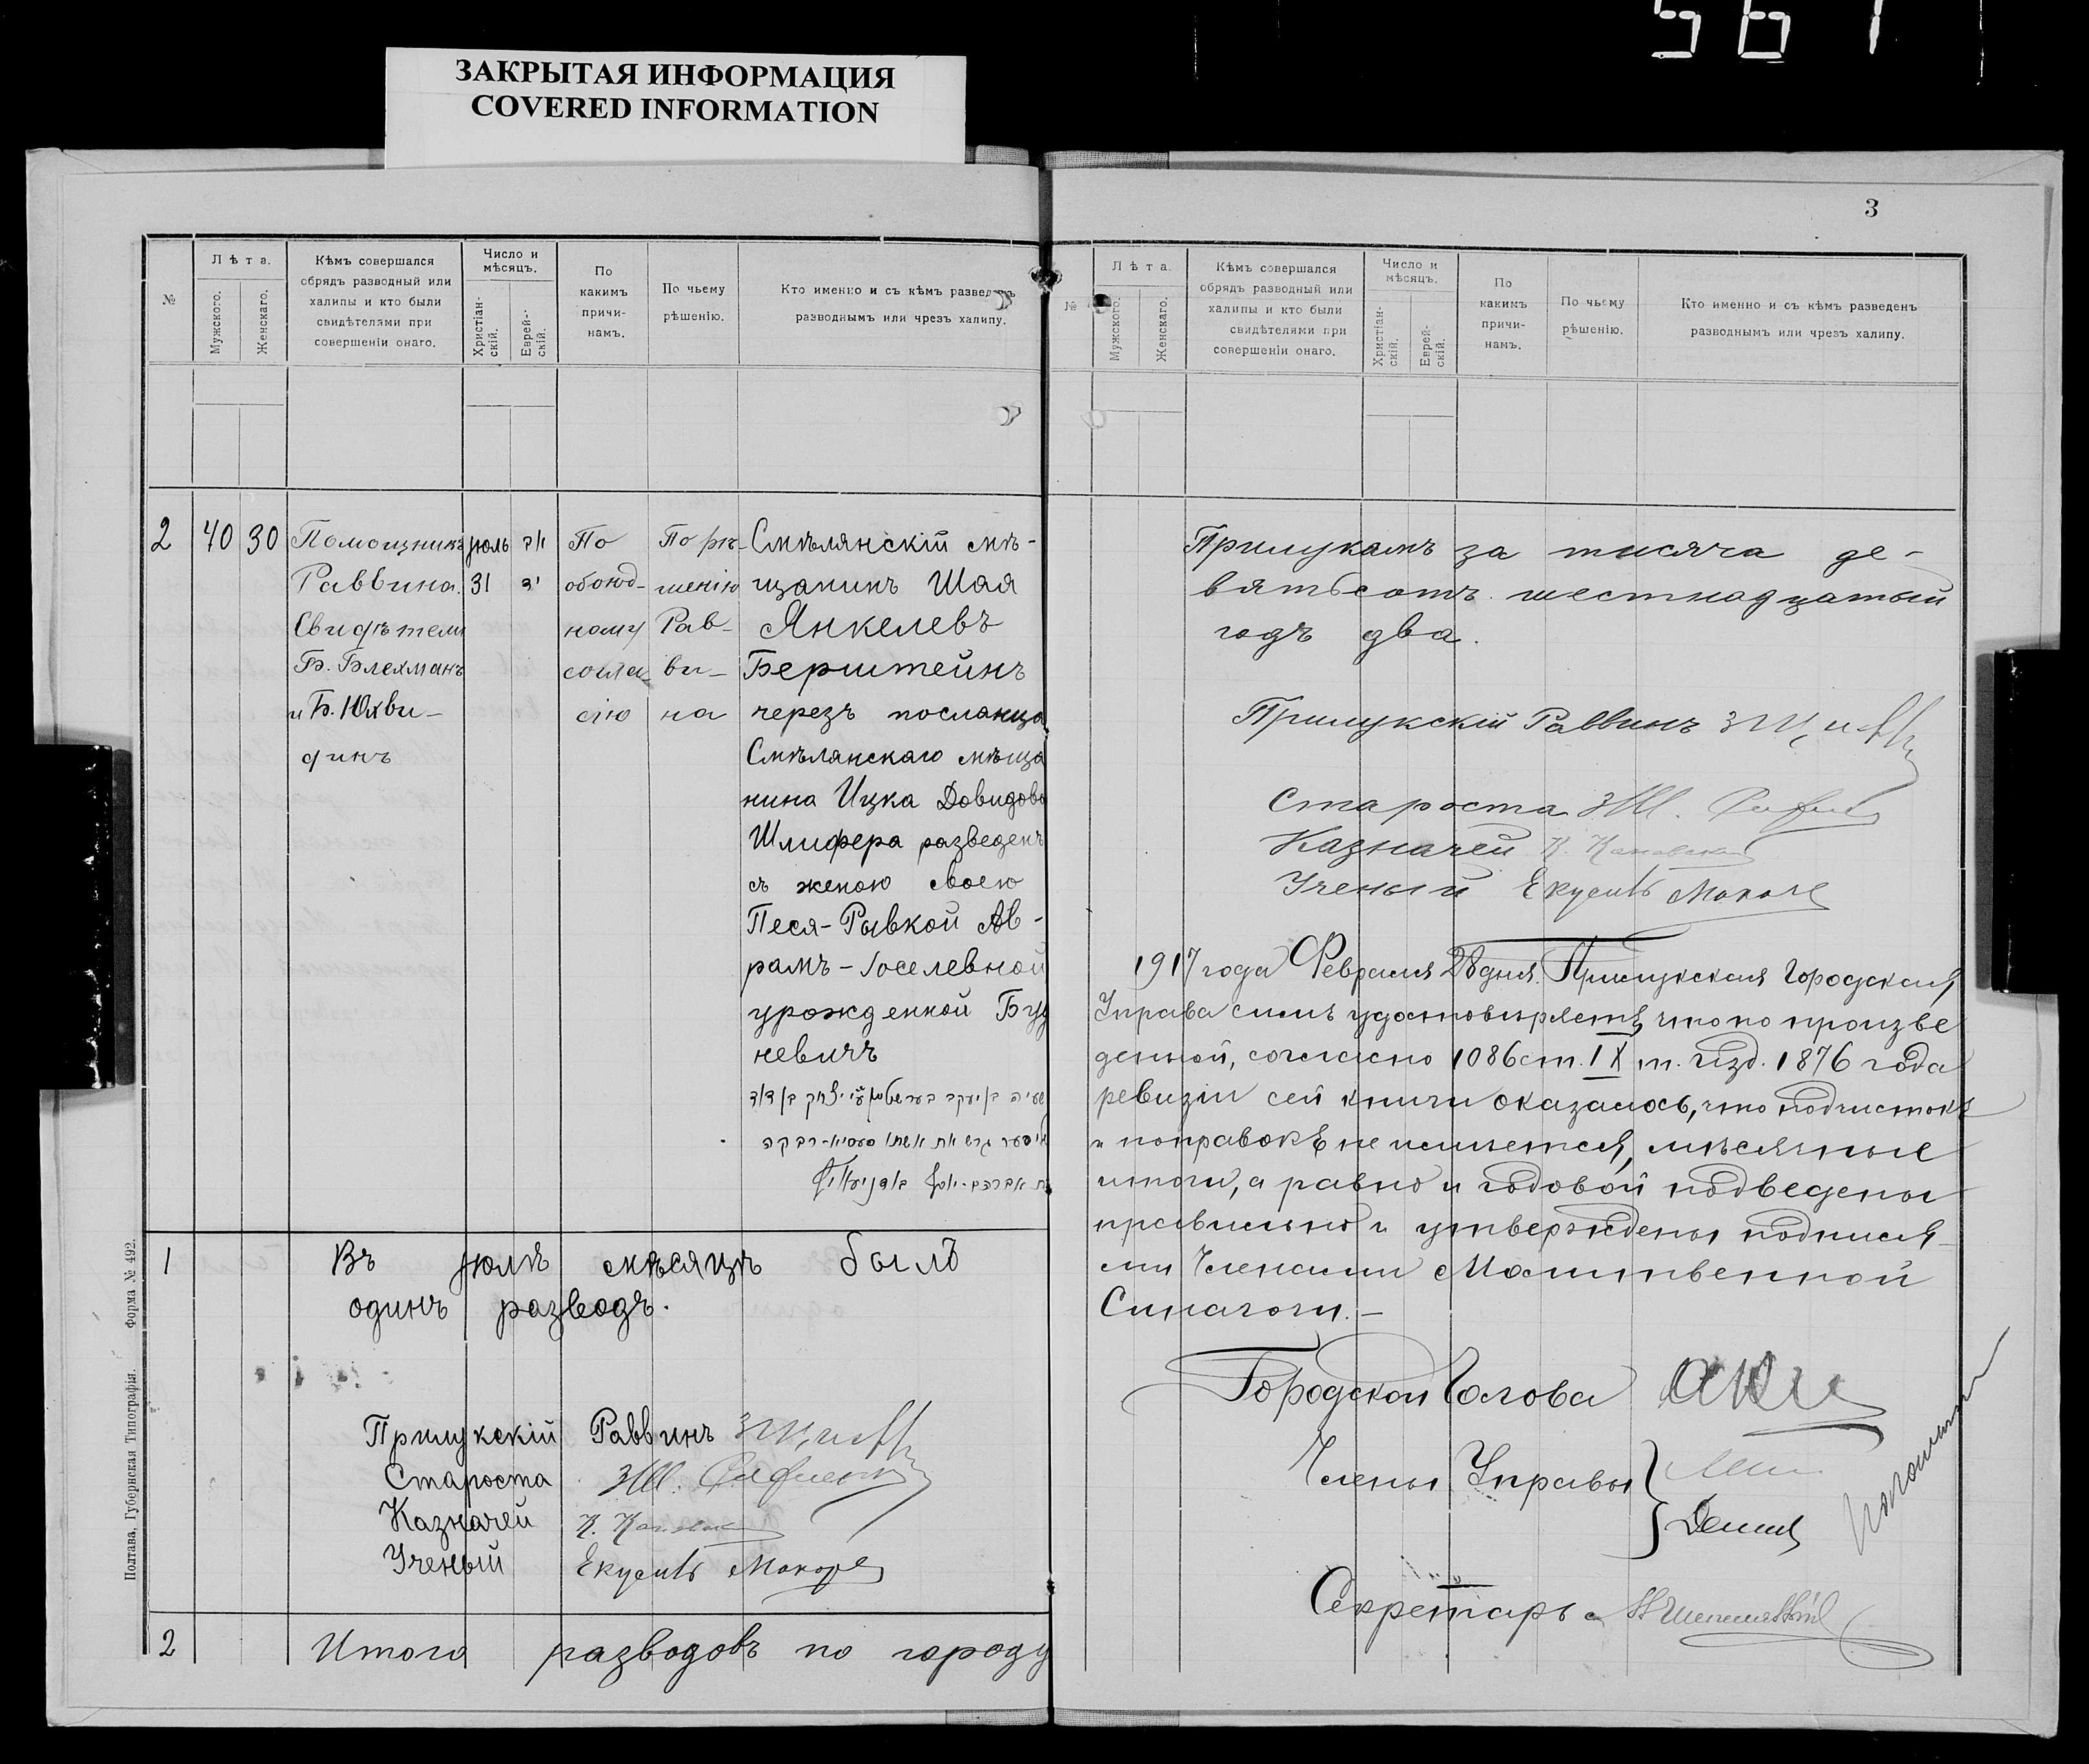 561
ЗАКРЫТАЯ ИНФОРМАЦИЯ
COVERED INFORMATION
3
№
Лѣта.
Мужского.
Женскаго.
Кѣмъ совершался
обрядъ разводный или
халипы и кто были
свидѣтелями при
совершеніи онаго.
Число и
мѣсяцъ.
Христіан-
скій.
Еврей-
скій.
По
какимъ
причи-
намъ.
По чьему
рѣшенію.
Кто именно и съ кѣмъ разведенъ
разводнымъ или чрезъ халипу.
2
40
30
Помощникъ
Раввина.
Свидѣтели
Б. Блехманъ
и Б. Юхви-
динъ
Июль
31
По
обоюд-
ному
согла-
сію
По рѣ-
шенію
Рав-
ви-
на
Смѣлянскій мѣ-
щанинъ Шая
Янкелевъ
Берштейнъ
черезъ посланца
Смѣлянскаго мѣща
нина Ицка Довидова
Шлифера разведенъ
съ женою своею
Песя-Рывкой Аб-
рамъ-Іоселевной
урожденной Буд
невичъ
גרש את אשתו פעסיא-רבקה
1
Въ Июлѣ мѣсяцѣ былъ
одинъ разводъ.
Прилукскій Раввинъ
Староста
Казначей
Ученый Екусіиль
2
Итого разводовъ по городу
Полтава, Губернская Типографія. Форма № 492.
№
Лѣта.
Мужского.
Женскаго.
Кѣмъ совершался
обрядъ разводный или
халипы и кто были
свидѣтелями при
совершеніи онаго.
Число и
мѣсяцъ.
Христіан-
скій.
Еврей-
скій.
По
какимъ
причи-
намъ.
По чьему
рѣшенію.
Кто именно и съ кѣмъ разведенъ
разводнымъ или чрезъ халипу.
Прилукамъ за тысяча де-
вятьсотъ шестнадцатый
годъ два.
Прилукскій Раввинъ
Староста
Казначей
Ученый
1917 года Февраля 28 дня. Прилукская Городская
Управа симъ удостовѣряетъ, что по произве
денной, согласно 1086 ст. IX т. изд. 1876 года
ревизіи сей книги оказалось, что подчистокъ
и поправокъ не имѣется, мѣсячные
итоги, а равно и годовой подведены
правильно и утверждены подпися-
ми Членами Молитвенной
Синагоги.-
Городской Голова
Члены Управы
Секретарь